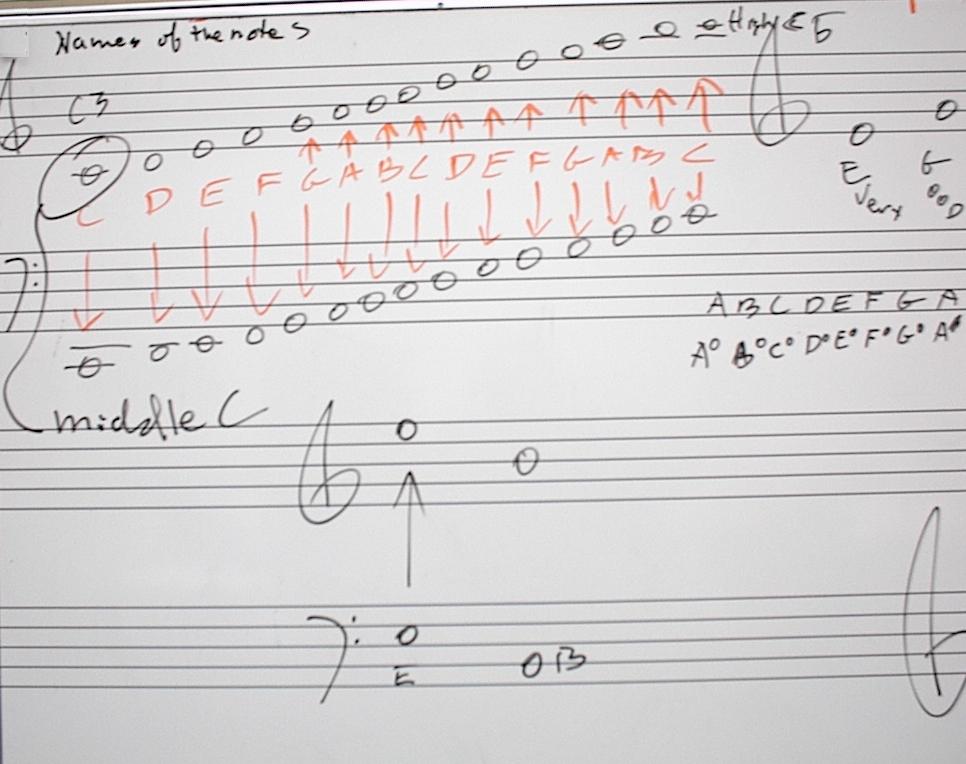 Names of the notes
High C 5
C3
C D E F G A B C D E F G A B C
E G
Very
A B C D E F G A
A° B° C° D° E° F° G° A°
middle C
E B